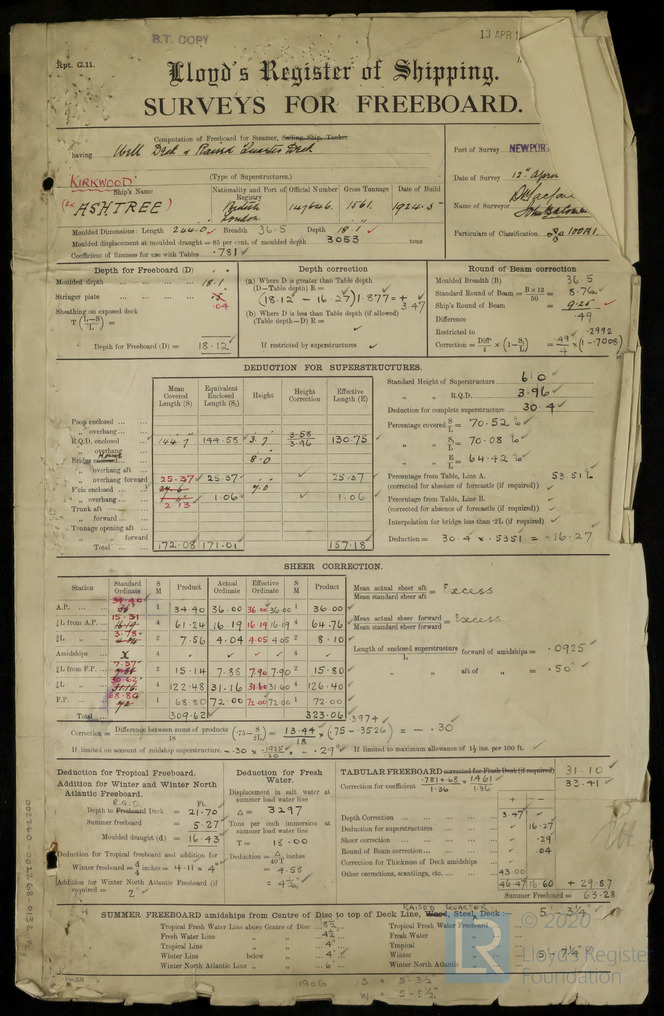 B.T. COPY
13 APR 1
Rpt. C.11.
Lloyd's Register of Shipping.
SURVEYS FOR FREEBOARD.
Computation of Freeboard for Steamer, Sailing Ship, Tanker
having Well Deck & Raised Quarter Deck
(Type of Superstructures.)
KIRKWOOD
Ship's Name
(ex ASHTREE)
Nationality and Port of Registry
British
London
Official Number
147646.
Gross Tonnage
1561.
Date of Build
1924-5
Port of Survey NEWPOR
Date of Survey 12th April
Name of Surveyor
Particulars of Classification 100A1.
Moulded Dimensions: Length 244.0 Breadth 36.5 Depth 18.1
Moulded displacement at moulded draught = 85 per cent. of moulded depth 3053 tons
Coefficient of fineness for use with Tables .781
Depth for Freeboard (D)
Moulded depth 18.1
Stringer plate .04
Sheathing on exposed deck
T (L-S/L) =
Depth for Freeboard (D) = 18.12
Depth correction
(a) Where D is greater than Table depth
(D—Table depth) R =
(18.12 - 16.27) 1.877 = + 3.47
(b) Where D is less than Table depth (if allowed)
(Table depth—D) R =
If restricted by superstructures
Round of Beam correction
Moulded Breadth (B) 36.5
Standard Round of Beam = B×12/50 = 8.76
Ship's Round of Beam = 9.25
Difference .49
Restricted to .2992
Correction = Diff/4 × (1 - S1/L) = .49/4 × (1-.7008)
DEDUCTION FOR SUPERSTRUCTURES.
Mean Covered Length (S) Equivalent Enclosed Length (S1) Height Height Correction Effective Length (E)
Poop enclosed
„ overhang
R.Q.D. enclosed 144.7 144.58 3.7 3.58/3.96 130.75
„ overhang
Bridge enclosed 8.0
„ overhang aft
„ overhang forward 25.37 25.37 25.37
F'cle enclosed 7.0
„ overhang 2.13 1.06 1.06
Trunk aft
„ forward
Tonnage opening aft
„ „ forward
Total 172.08 171.01 157.18
Standard Height of Superstructure 6.0
„ „ R.Q.D. 3.96
Deduction for complete superstructure 30.4
Percentage covered S/L = 70.52 %
„ „ S1/L = 70.08 %
„ „ E/L = 64.42 %
Percentage from Table, Line A. 53.51%
(corrected for absence of forecastle (if required))
Percentage from Table, Line B.
(corrected for absence of forecastle (if required))
Interpolation for bridge less than ·2L (if required)
Deduction = 30.4 × .5351 = -16.27
SHEER CORRECTION.
Station Standard Ordinate S M Product Actual Ordinate Effective Ordinate S M Product
A.P. 34.40 1 34.40 36.00 36.00 36.00 1 36.00
⅙L from A.P. 15.31 4 61.24 16.19 16.19 16.19 4 64.76
⅓L „ 3.78 2 7.56 4.04 4.05 4.05 2 8.10
Amidships 4 4
⅓L from F.P. 7.57 2 15.14 7.88 7.90 7.90 2 15.80
⅙L „ 30.62 4 122.48 31.16 31.60 31.60 4 126.40
F.P. 68.80 1 68.80 72.00 72.00 72.00 1 72.00
Total 309.62 323.06
Mean actual sheer aft / Mean standard sheer aft = Excess
Mean actual sheer forward / Mean standard sheer forward = Excess
Length of enclosed superstructure forward of amidships / L = .0925
„ „ aft of „ = .50
Correction = Difference between sums of products / 18 (·75 - S/2L) = 13.44/18 × (.75 - .3526) = - .30
.3974
If limited on account of midship superstructure. - .30 × .1925/.20 = - .29 If limited to maximum allowance of 1½ ins. per 100 ft.
Deduction for Tropical Freeboard.
Addition for Winter and Winter North Atlantic Freeboard.
R.Q.D. Ft.
Depth to Freeboard Deck = 21.70
Summer freeboard = 5.27
Moulded draught (d) = 16.43
Deduction for Tropical freeboard and addition for
Winter freeboard = d/4 inches = 4.11 = 4"
Addition for Winter North Atlantic Freeboard (if required) = 2"
Deduction for Fresh Water.
Displacement in salt water at summer load water line
Δ = 3297
Tons per inch immersion at summer load water line
T = 18.00
Deduction = Δ/40T inches
= 4.58
= 4½"
TABULAR FREEBOARD corrected for Flush Deck (if required) 31.10
Correction for coefficient .781+.68/1.36 = 1.461/1.36 33.41
+ -
Depth Correction 3.47
Deduction for superstructures 16.27
Sheer correction .29
Round of Beam correction .04
Correction for Thickness of Deck amidships
Other corrections, scantlings, etc. 43.00
46.47 16.60 + 29.87
Summer Freeboard = 63.28
SUMMER FREEBOARD amidships from Centre of Disc to top of Deck Line, Wood, Steel, Deck :— 5' 3¼"
RAISED QUARTER
Tropical Fresh Water Line above Centre of Disc 8½
Fresh Water Line „ „ 4½
Tropical Line „ „ 4"
Winter Line below „ 4"
Winter North Atlantic Line „ „ 6"
Tropical Fresh Water Freeboard
Fresh Water „
Tropical „
Winter „ 5' 7¼"
Winter North Atlantic „
1906
S = 5-3½
W = 5-5½
002460-002468-0132
© 2020
LR
Lloyd's Register
Foundation